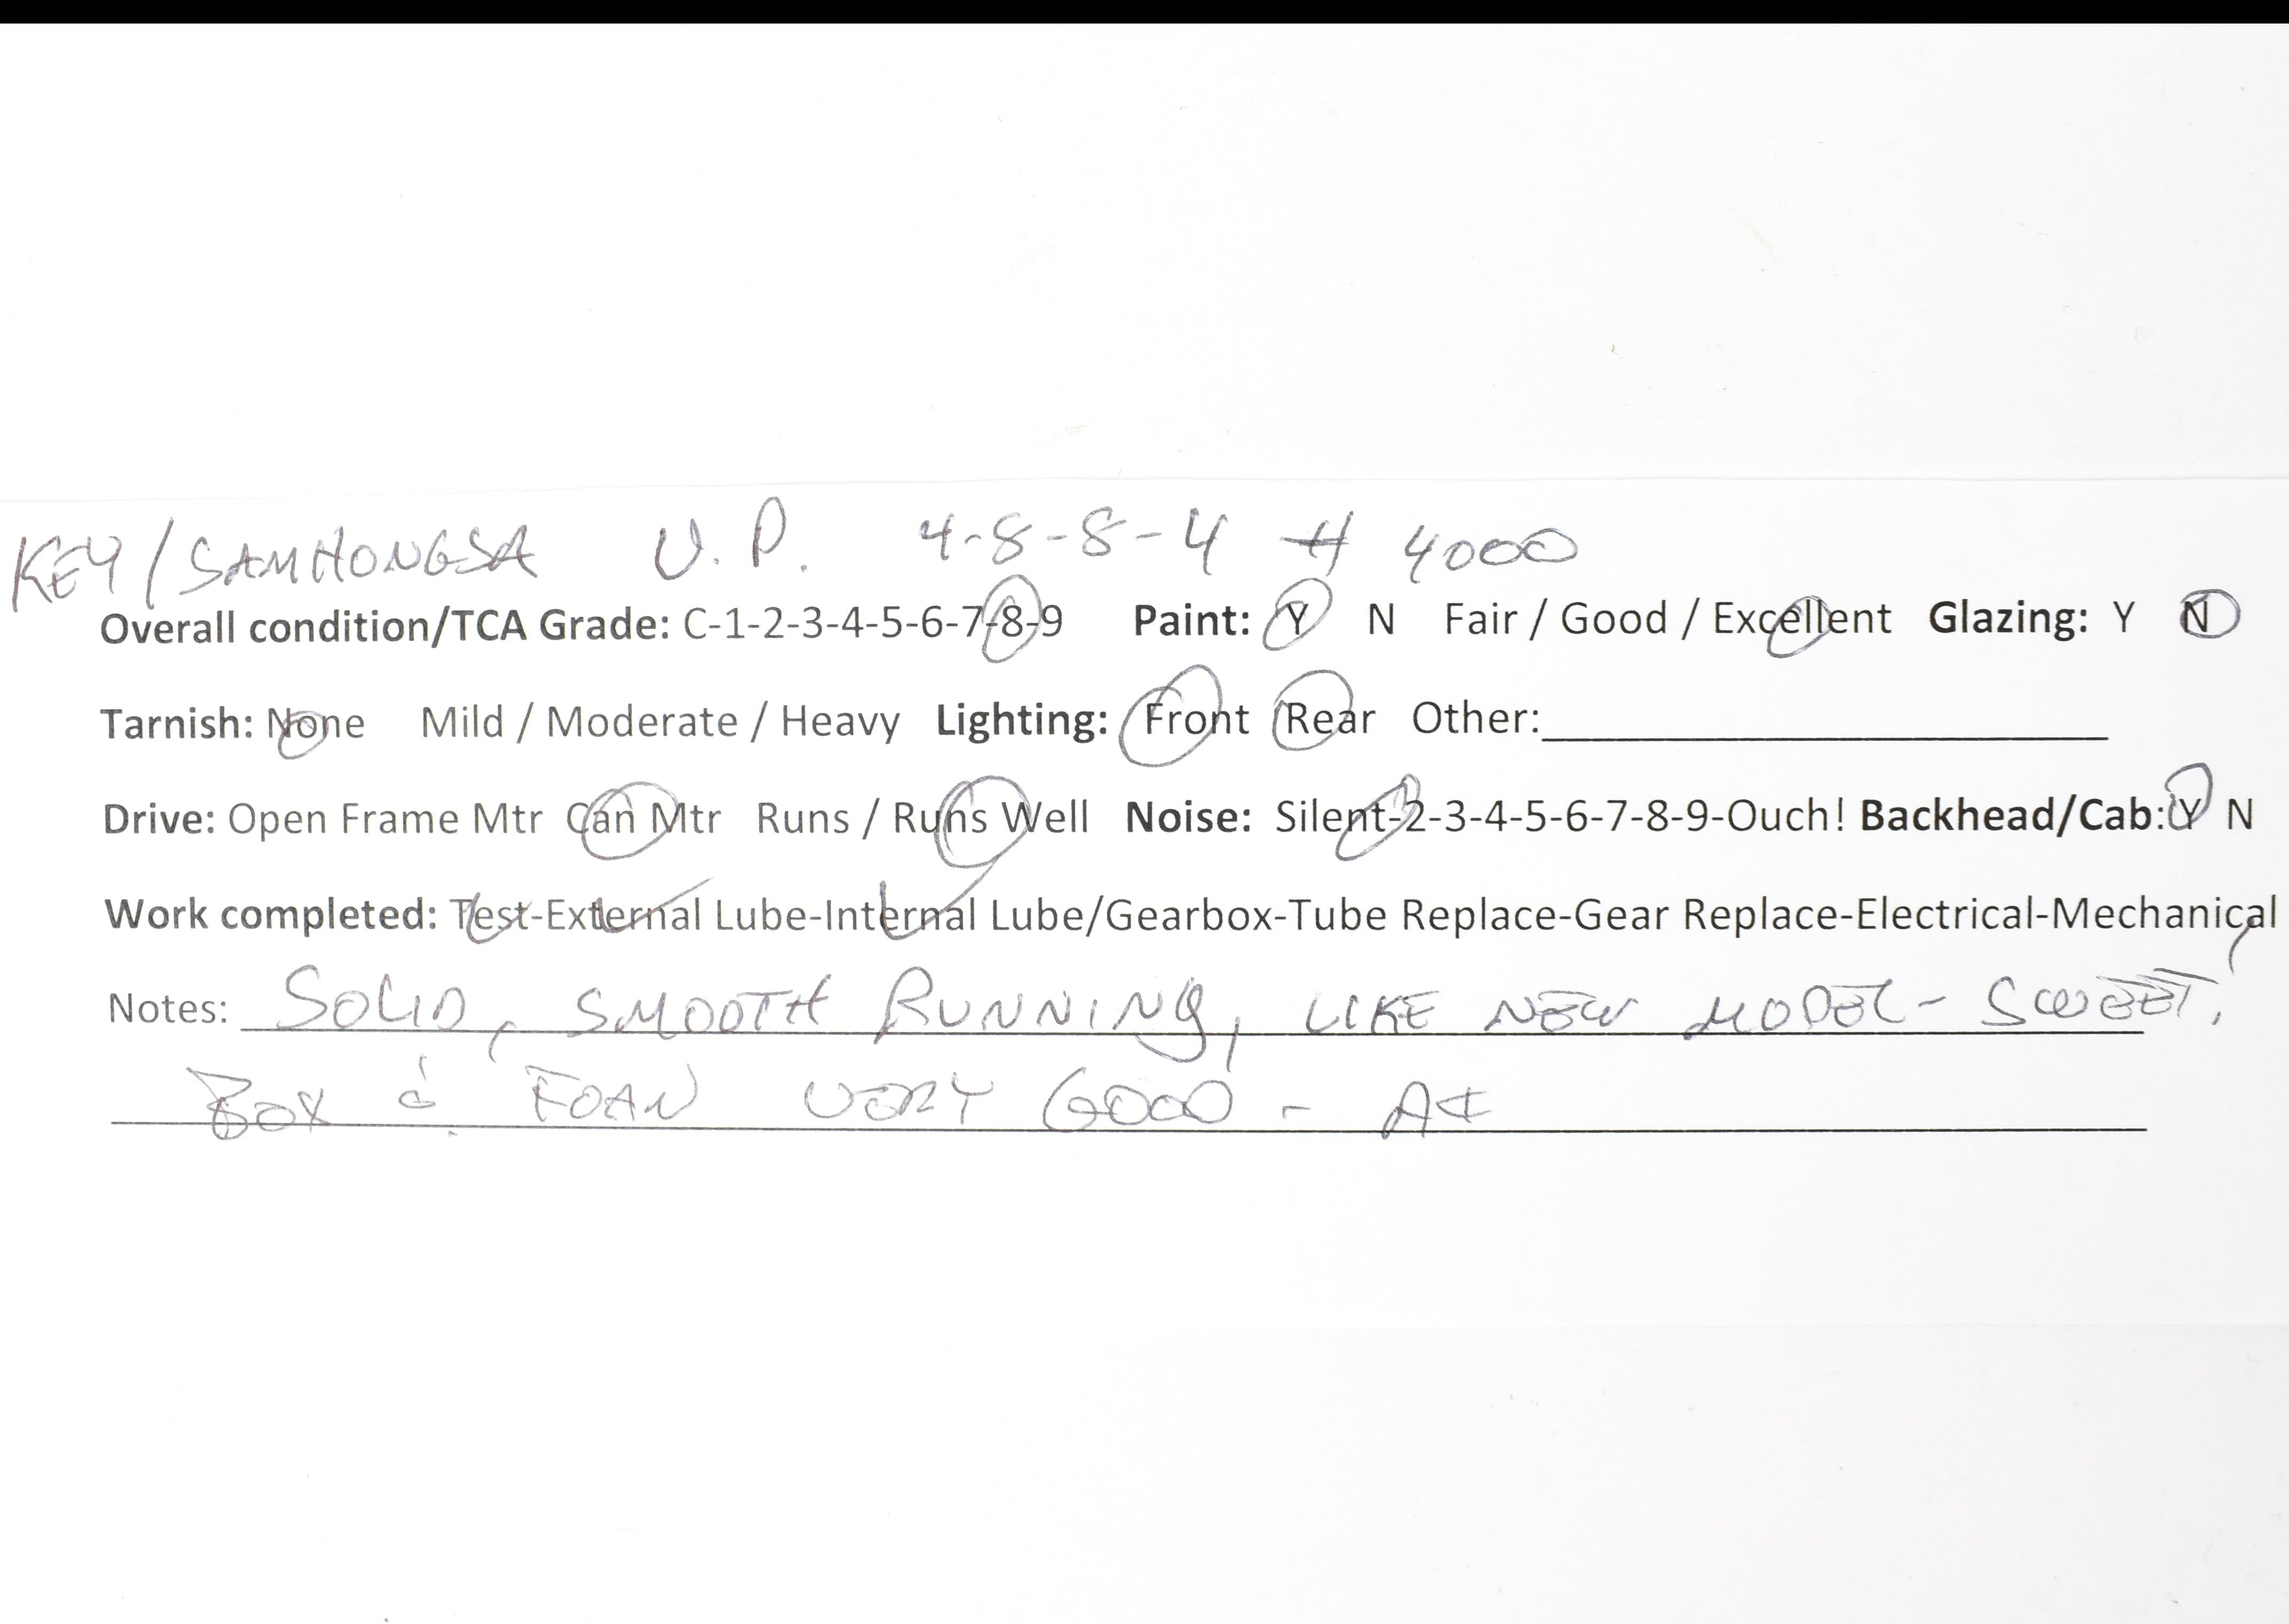 KEY/SAMHONGSA U.P. 4-8-8-4 # 4000
Overall condition/TCA Grade: C-1-2-3-4-5-6-7-8-9 Paint: Y N Fair / Good / Excellent Glazing: Y N
Tarnish: None Mild / Moderate / Heavy Lighting: Front Rear Other:
Drive: Open Frame Mtr Can Mtr Runs / Runs Well Noise: Silent-2-3-4-5-6-7-8-9-Ouch! Backhead/Cab: Y N
Work completed: Test-External Lube-Internal Lube/Gearbox-Tube Replace-Gear Replace-Electrical-Mechanical
Notes: SOLID, SMOOTH RUNNING, LIKE NEW MODEL - SWEET!
BOX & FOAM VERY GOOD - A+